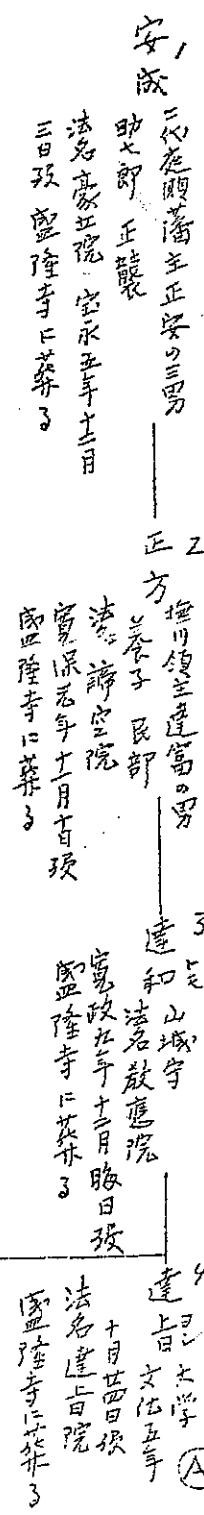 1
安成
二代庭瀬藩主正安の三男
助七郎 正襲
法名豪立院 宝永五年十二月
三日歿 盛隆寺に葬る
2
正方
撫川領主達富の男
養子 民部
法名 諦空院
寛保元年十一月十日歿
盛隆寺に葬る
3
達和 山城守
法名 教應院
寛政九年十二月晦日歿
盛隆寺に葬る
4
達旨 大学
文化五年
十月廿四日歿
法名達旨院
盛隆寺に葬る
A